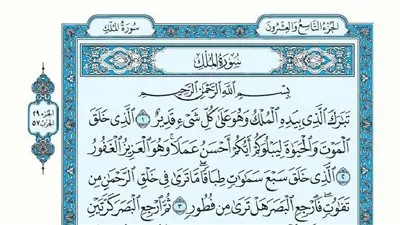 سُورَةُ المُلْكِ
الجُزْءُ التَّاسِعُ وَالعِشْرُونَ
سُورَةُ المُلْكِ
الجزء ٢٩
الحزب ٥٧
بِسْمِ اللَّهِ الرَّحْمَٰنِ الرَّحِيمِ
تَبَٰرَكَ ٱلَّذِى بِيَدِهِ ٱلْمُلْكُ وَهُوَ عَلَىٰ كُلِّ شَىْءٍ قَدِيرٌ ١ ٱلَّذِى خَلَقَ
ٱلْمَوْتَ وَٱلْحَيَوٰةَ لِيَبْلُوَكُمْ أَيُّكُمْ أَحْسَنُ عَمَلًا وَهُوَ ٱلْعَزِيزُ ٱلْغَفُورُ
٢ ٱلَّذِى خَلَقَ سَبْعَ سَمَٰوَٰتٍ طِبَاقًا مَّا تَرَىٰ فِى خَلْقِ ٱلرَّحْمَٰنِ مِن
تَفَٰوُتٍ فَٱرْجِعِ ٱلْبَصَرَ هَلْ تَرَىٰ مِن فُطُورٍ ٣ ثُمَّ ٱرْجِعِ ٱلْبَصَرَ كَرَّتَيْنِ